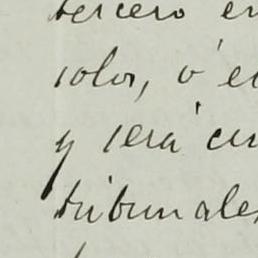 tercero en
solos, ó e
y será cu
tribunales